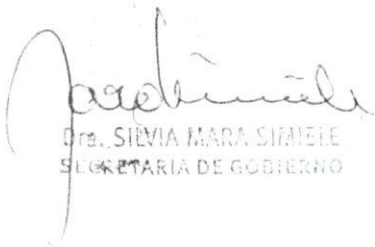 Dra. SILVIA MARA SIMIELE
SECRETARIA DE GOBIERNO